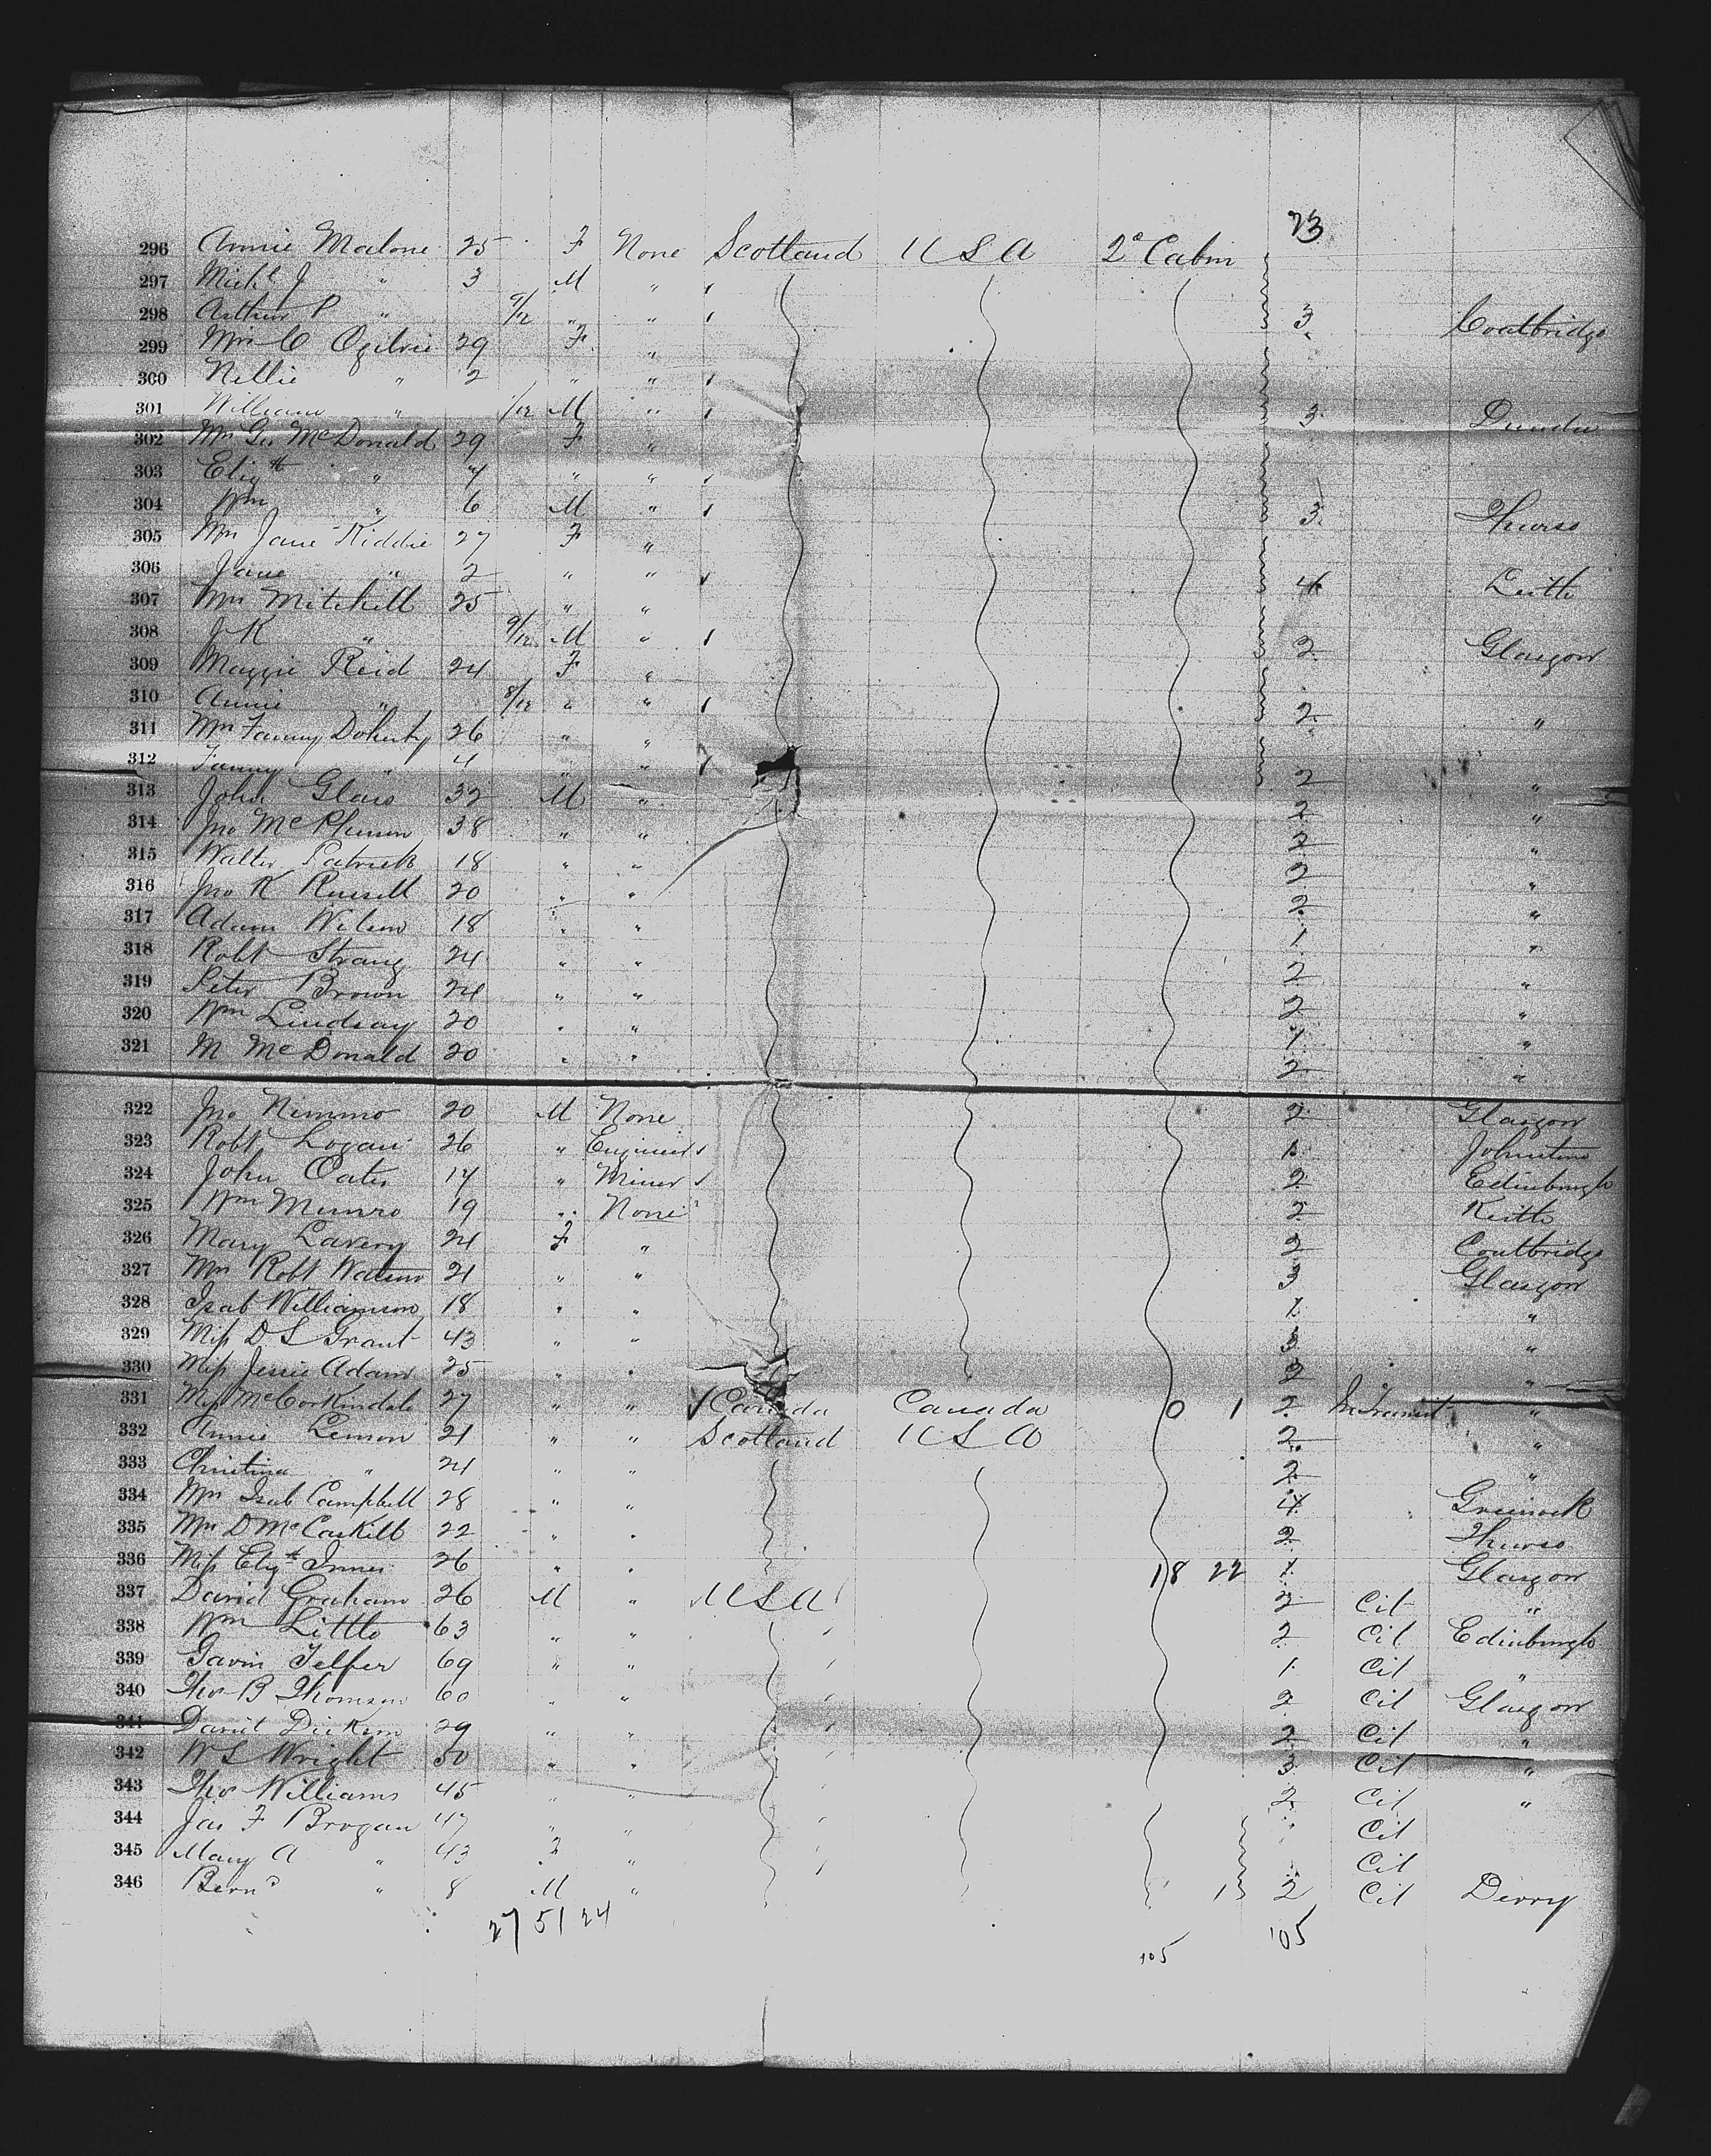 23
296 Annie Malone 25 F None Scotland U S A 2e Cabin
297 Michl J " 3 M " "
298 Arthur P " 9/12 " " 3 Coatbridge
299 Mrs C Ogilvie 29 F "
300 Nellie " 2 " "
301 William " 1/12 M " 3 Dundee
302 Mrs Geo McDonald 29 F "
303 Elizth " 7 " "
304 Wm " 6 M " 3 Thurso
305 Mrs Jane Kiddie 27 F "
306 Jane " 2 " " 4 Leith
307 Mrs Mitchell 25 " "
308 J K " 9/12 M " 2 Glasgow
309 Maggie Reid 24 F "
310 Annie " 8/12 " " 2 "
311 Mrs Fanny Doherty 26 " "
312 Fanny " 4 " " 2 "
313 John Glass 32 M " 2 "
314 Jno McPherson 38 " " 2 "
315 Walter Patrick 18 " " 2 "
316 Jno K Russell 20 " " 2 "
317 Adam Wilson 18 " " 1 "
318 Robt Strang 24 " " 2 "
319 Peter Brown 24 " " 2 "
320 Wm Lindsay 20 " " 1 "
321 M McDonald 20 " " 2 "
322 Jno Nimmo 20 M None 2 Glasgow
323 Robt Logan 26 " Engineer 1 Johnstone
324 John Oates 17 " Miner 2 Edinburgh
325 Wm Munro 19 " None 2 Keith
326 Mary Lavery 24 F " 2 Coatbridge
327 Mrs Robt Watson 21 " " 3 Glasgow
328 Isab Williamson 18 " " 1 "
329 Miss D S Grant 43 " " 3 "
330 Miss Jessie Adam 25 " " 2 "
331 Miss McCorkindale 27 " " Canada Canada 0 1 2 In Transit "
332 Annie Lemon 21 " " Scotland U S A 2 "
333 Christina " 24 " " 2 "
334 Mrs Isab Campbell 28 " " 4 Greenock
335 Mrs D McCaskill 22 " " 2 Thurso
336 Miss Elizth Innes 26 " " 18 22 1 Glasgow
337 David Graham 26 M " U S A 2 Cit "
338 Wm Little 63 " " 2 Cit Edinburgh
339 Gavin Telfer 69 " " 1 Cit "
340 Thos B Thomson 60 " " 2 Cit Glasgow
341 Daniel Dickson 29 " " 2 Cit "
342 W S Wright 50 " " 3 Cit "
343 Thos Williams 45 " " 2 Cit "
344 Jas F Brogan 47 " " Cit
345 Mary A " 43 F " Cit
346 Bernd " 8 M " 1 2 Cit Derry
27 51 24
105 105